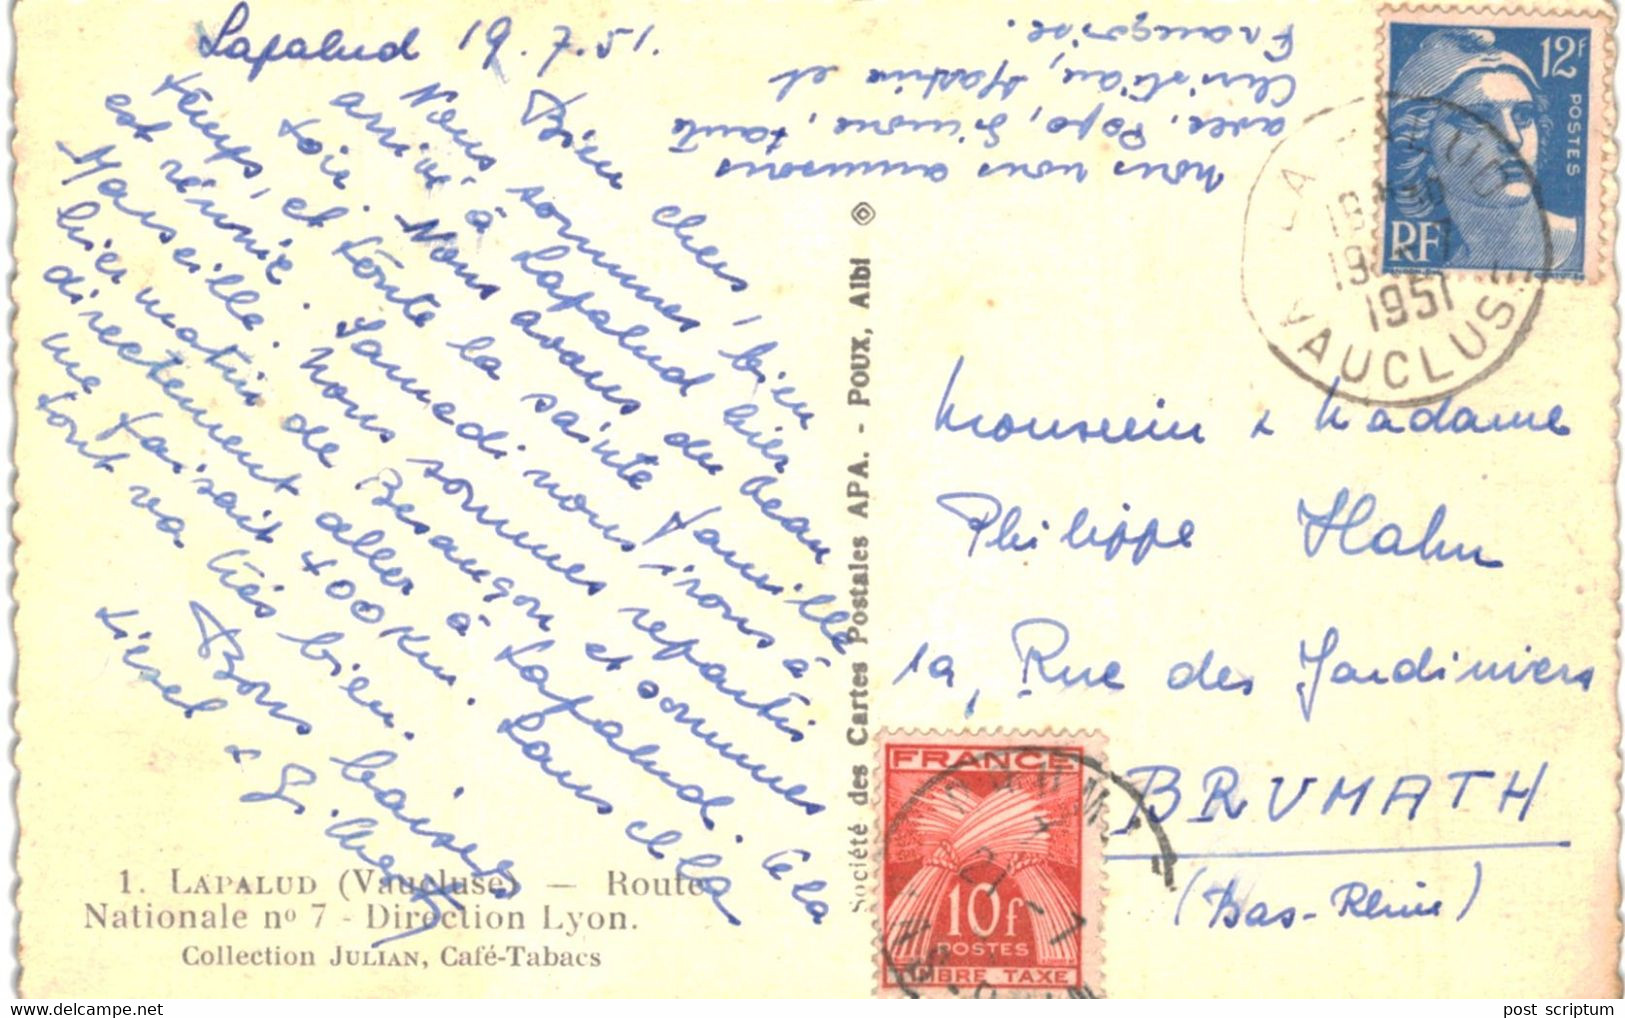 Lapalud 19.7.51.
Bien chers,
Nous sommes bien
arrivé à Lapalud hier
soir. Nous avons du beau
temps, et toute la sainte famille
est réunie. Samedi nous irons à
Marseille. Nous sommes repartis
hier matin de Besançon et sommes
directement aller à Lapalud. Cela
me faisait 400 km. Sans cela
tout va très bien.
Bons baisers
Liesel & Gilbert
Nous nous amusons
avec Papa, Simone, tante
Christiane, Martine et
Françoise.
1. LAPALUD (Vaucluse) — Route
Nationale no 7 - Direction Lyon.
Collection JULIAN, Café-Tabacs
Société des Cartes Postales APA. - POUX, Albi
12F
POSTES
RF
LAPALUD
1951
VAUCLUSE
Monsieur & Madame
Philippe Hahn
19, Rue des Jardiniers
BRUMATH
(Bas-Rhin)
FRANCE
10f
POSTES
TIMBRE TAXE
BRUMATH
21-7
post scriptum